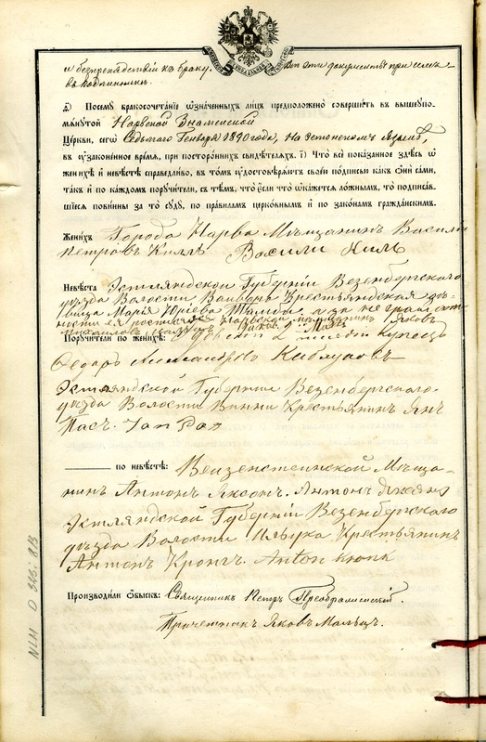 и безпрепядствій къ браку. Всѣ эти документы при семъ
Посему бракосочетаніе означенныхъ лицъ предположено совершить въ вышеупо-
мянутой Нарвской Знаменской
Церкви, сего Седьмаго Генваря 1890 года, на эстонскомъ языкѣ,
въ узаконенное время, при постороннихъ свидѣтеляхъ. і) Что всѣ показанное здѣсь о
женихѣ и невѣстѣ справедливо, въ томъ удостовѣряютъ своею подписью какъ они сами,
такъ и по каждомъ поручители, съ тѣмъ, что если что окажется ложнымъ, то подписав-
шіеся повинны за то суду, по правиламъ церковнымъ и по законамъ гражданскимъ.
Женихъ Города Нарва Мѣщанинъ Василій
Петровъ Килль Васили Киль
Невѣста Эстляндской Губерніи Везенбергского
уѣзда Волости Вайвара Крестьянская дѣ-
вица Марія Юріева а за не грамот
ностію ея росписался Нарвскій Яковъ
Поручители по женихѣ: 2 гильдіи купецъ
Ѳедоръ Александровъ
Эстляндской Губерніи Везенбергского
уѣзда Волости Винни Крестьянинъ Янъ
Пасъ.
по невѣстѣ: Вейзенстеинской Мѣща-
нинъ Антонъ Яксонъ. Антонъ
Эстляндской Губерніи Везенбергского
уѣзда Волости Крестьянинъ
Антонъ Anton
Производили обыскъ: Священникъ Петръ Преображенскій.
Причетникъ Яковъ Мальцъ.
NLM D 326: 913